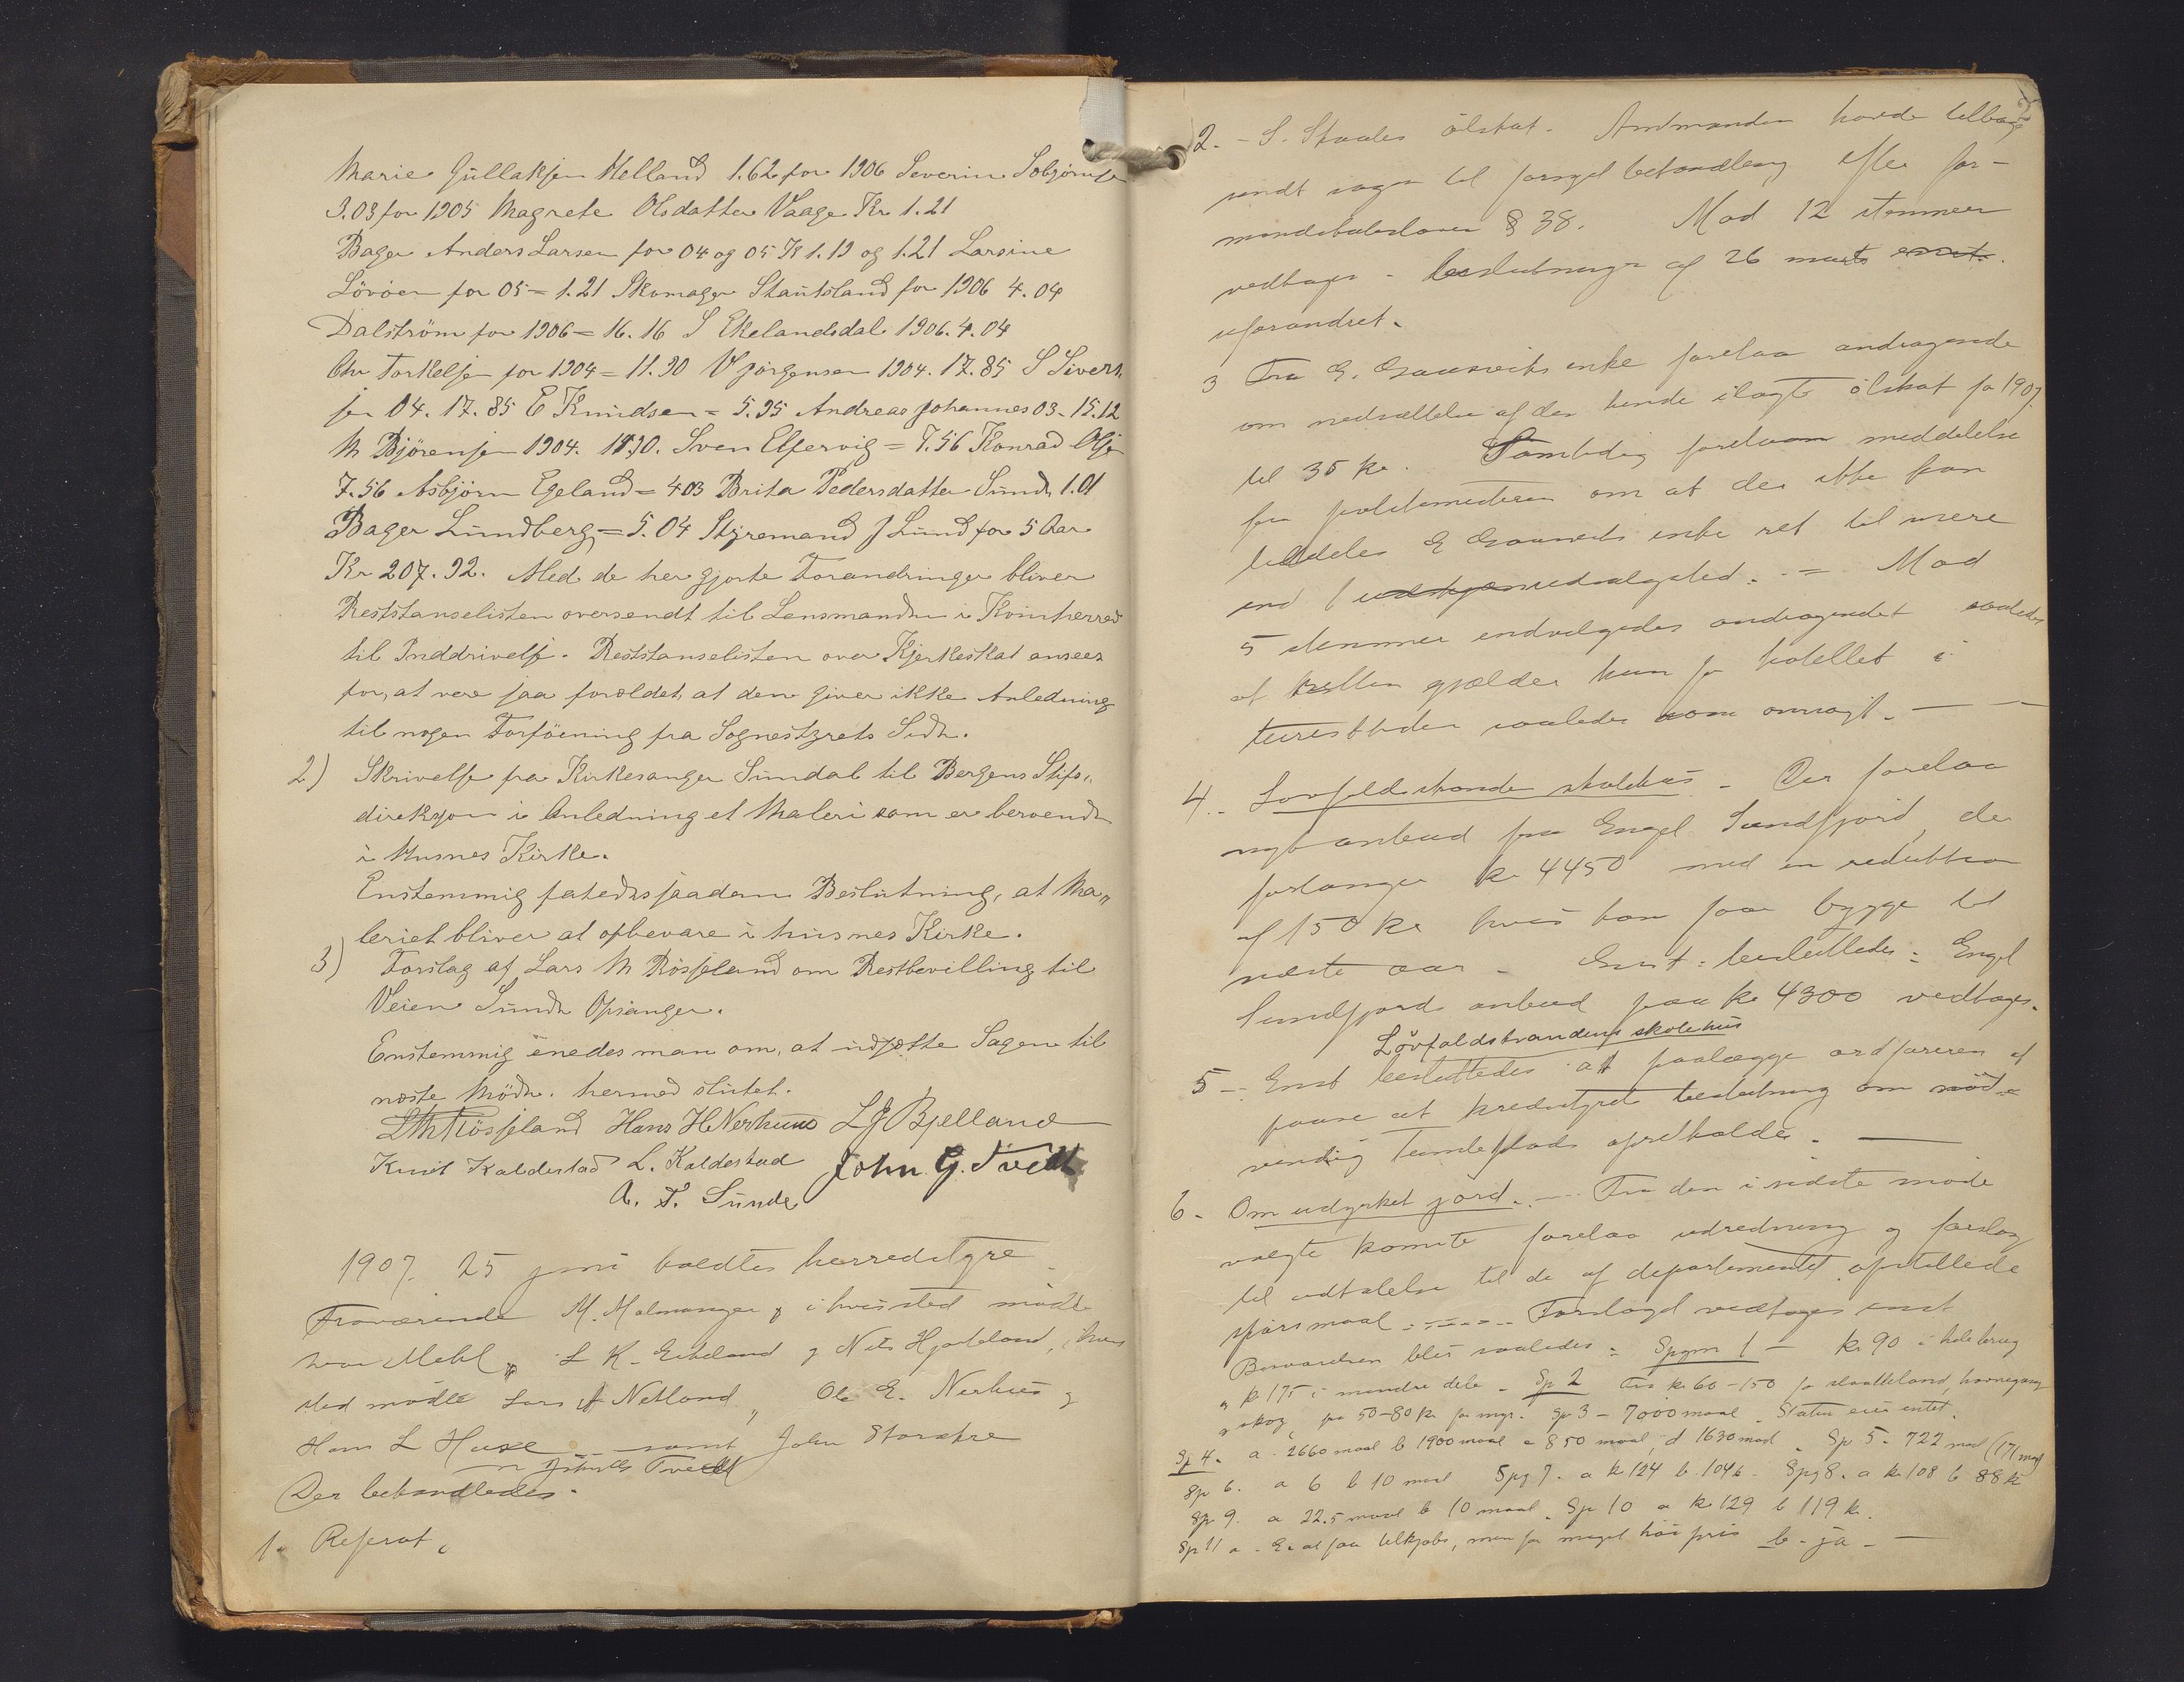 Marie Gullaksen Helland 1.62 for 1906 Severin Sobjørnsen
3.03 for 1905 Magrete Olsdatter Vaage Kr 1.21
Bager Anders Larsen for 04 og 05 Kr 1.19 og 1.21 Larsine
Lövöen for 05 = 1.21 Skomager Stautsland for 1906 4.04
Dalström for 1906 = 16.16 S Ekelandsdal 1906. 4.04
Chr Torkelsen for 1904 = 11.90 V Jörgensen 1904. 17.85 S Sivert-
sen 04. 17.85 E Knudsen = 5.95 Andreas Johannes 03 - 15.12
M Björensen 1904. 11.90. Sven Elfervig = 7.56 Konrad Olsen
7.56 Asbjørn Egeland = 403 Brita Pedersdatter Sunde 1.01
Bager Lundberg = 5.04 Styremand J Lund for 5 Aar
Kr 207.92. Med de her gjorte Forandringer bliver
Reststanselisten oversendt til Lensmanden i Kvinherred
til Inddrivelse. Reststanselisten over Kjerkeskat ansees
for, at vere saa foroldet, at den giver ikke Anledning
til nogen Forföining fra Sognestyrets Side.
2) Skrivelse fra Kirkesanger Sundal til Bergens Stifs-
direksjon i Anledning et Maleri som er beroende
i Husnes Kirke.
Enstemmig fatedes saadan Beslutning, at Ma-
leriet bliver at opbevare i husnes Kirke.
3) Forslag af Lars M Rösseland om Restbevilling til
Veien Sunde Opsanger.
Enstemmig enedes man om, at udsætte Sagen til
neste Möde. hermed slutet.
L M Rösseland Hans H Nerhuus L G Bjelland
Knut Kaldestad L. Kaldestad John G. Tvedt
A. T. Sunde
1907. 25 juni holdtes herredstyre.
Fraværende M. Malmanger i hvis sted mödte
Mehl, L K. Eikeland og Nils Hjorteland, i hvis
sted mödte Lars Netland, Ole E. Nerhus og
Hans L Huse samt John Storakre
Tvedt
Der behandledes.
1. Referat.
2. - S. Staales ölskat. Amtmanden havde tilbage
sendt sagen til fornyet behandling efter for-
mandskabsloven § 38. Mod 12 stemmer
vedtages - beslutningen af 26 marts
uforandret.
3 Fra G. enke forelaa andragende
om nedsættelse af den hende ilagte ölskat for 1907.
til 35 kr. Samtidig forelaa meddelelse
fra politimesteren om at der ikke kan
tildeles G enke ret til mere
end 1 udsalgssted. - Mod
5 stemmer indvilgedes andragendet saaledes
at gjælder kun for hotellet i
turisttiden saaledes som ansögt. -
4. - Lövfaldstranden skolehus. - Der forelaa
nyt anbud fra Engel Sundfjord, der
forlanger kr 4450 med en reduktion
af 150 kr hvis han faar bygge til
næste aar - Enst. besluttedes: Engel
Sundfjords anbud paa kr 4300 vedtages.
Lövfaldstrandens skolehus
5 - Enst besluttedes at paalægge ordföreren at
paase at kredsstyrets beslutning om nöd-
vendig tomteplads opretholdes. -
6. - Om udyrket jord. - Fra den i sidste möde
valgte komite forelaa udredning og forslag
til udtalelse til de af departementet opstillede
spörsmaal. Forslaget vedtages enst
Besvarelsen blir saaledes: Spgm 1 - kr 90 i hele brug
kr 175 i mindre dele - Sp 2 Fra kr 60-150 for slaatteland, havnegang
og skog, fra 50-80 kr for myr. Sp 3 - 7000 maal. Staten eier intet.
Sp 4. a. 2660 maal b 1900 maal c 850 maal, d 1630 maal. Sp 5. 722 maal (171 maal)
Sp 6. a 6 b 10 maal Spg 7. a kr 124 b 104 kr. Spg 8. a kr 108 b 88 kr
Sp 9. a 22.5 maal b 10 maal. Sp 10 a kr 129 b 119 kr.
Sp 11 a. Er at faa tilkjöbs, men for meget høi pris b - ja -